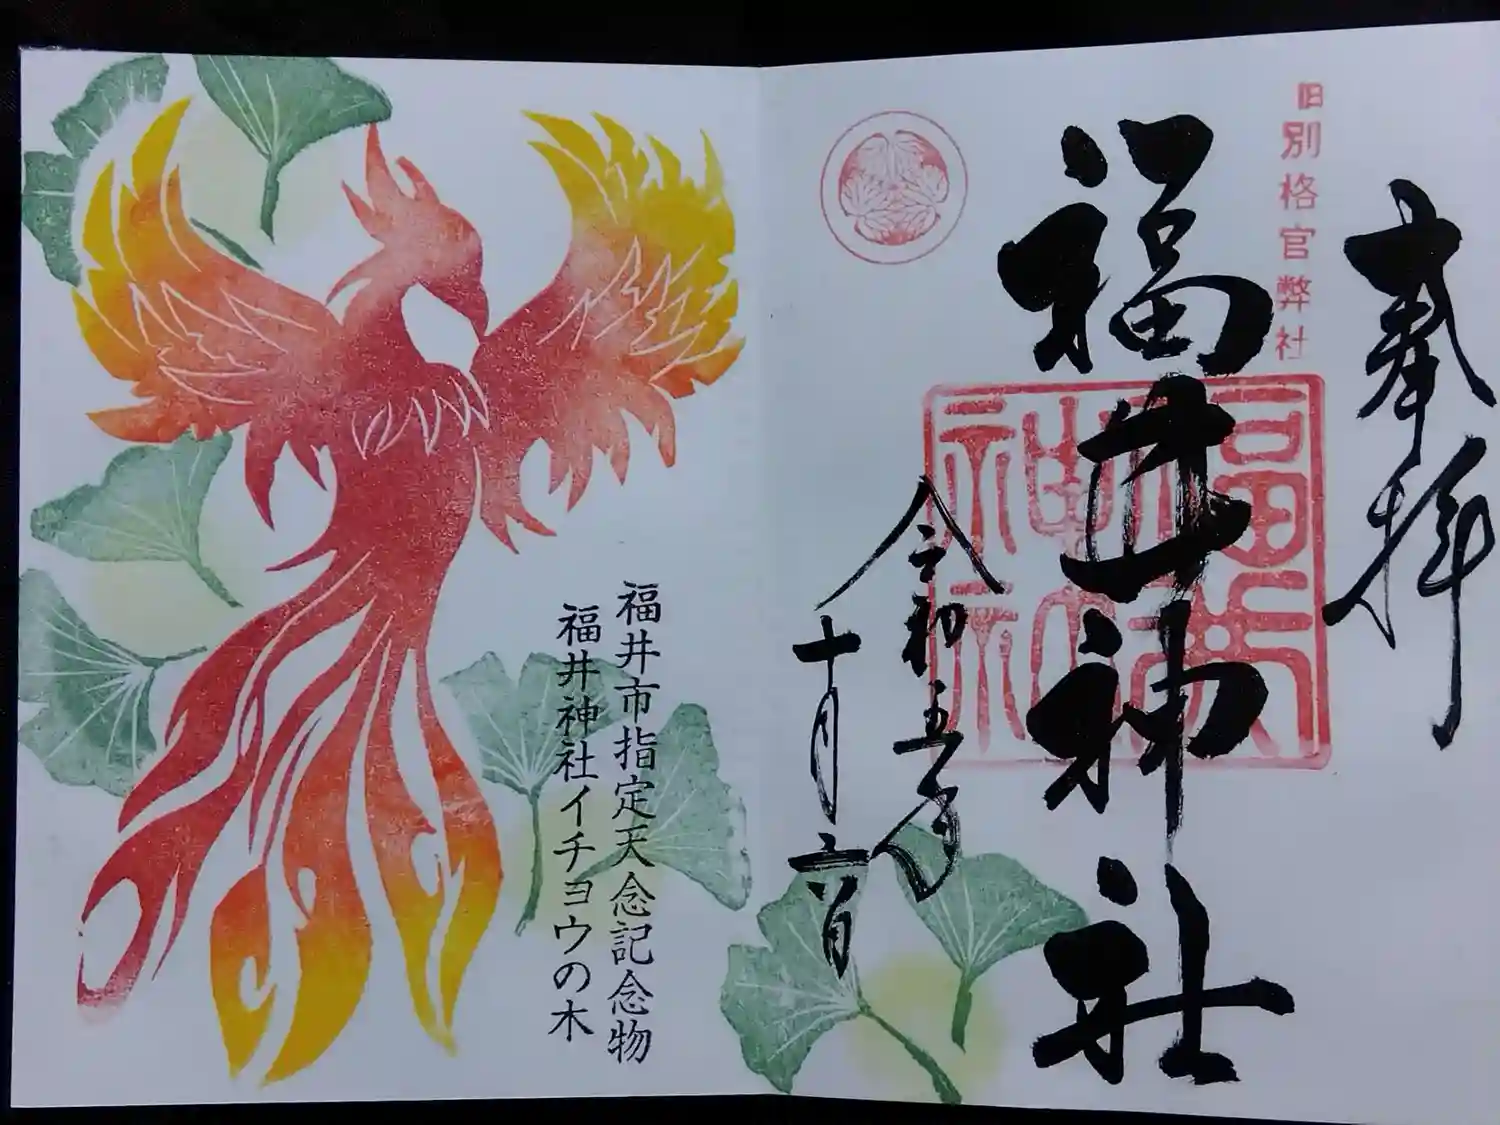 奉拝
旧別格官弊社
福井神社
福井神社
令和五年
十月六日
福井市指定天念記念物
福井神社イチョウの木